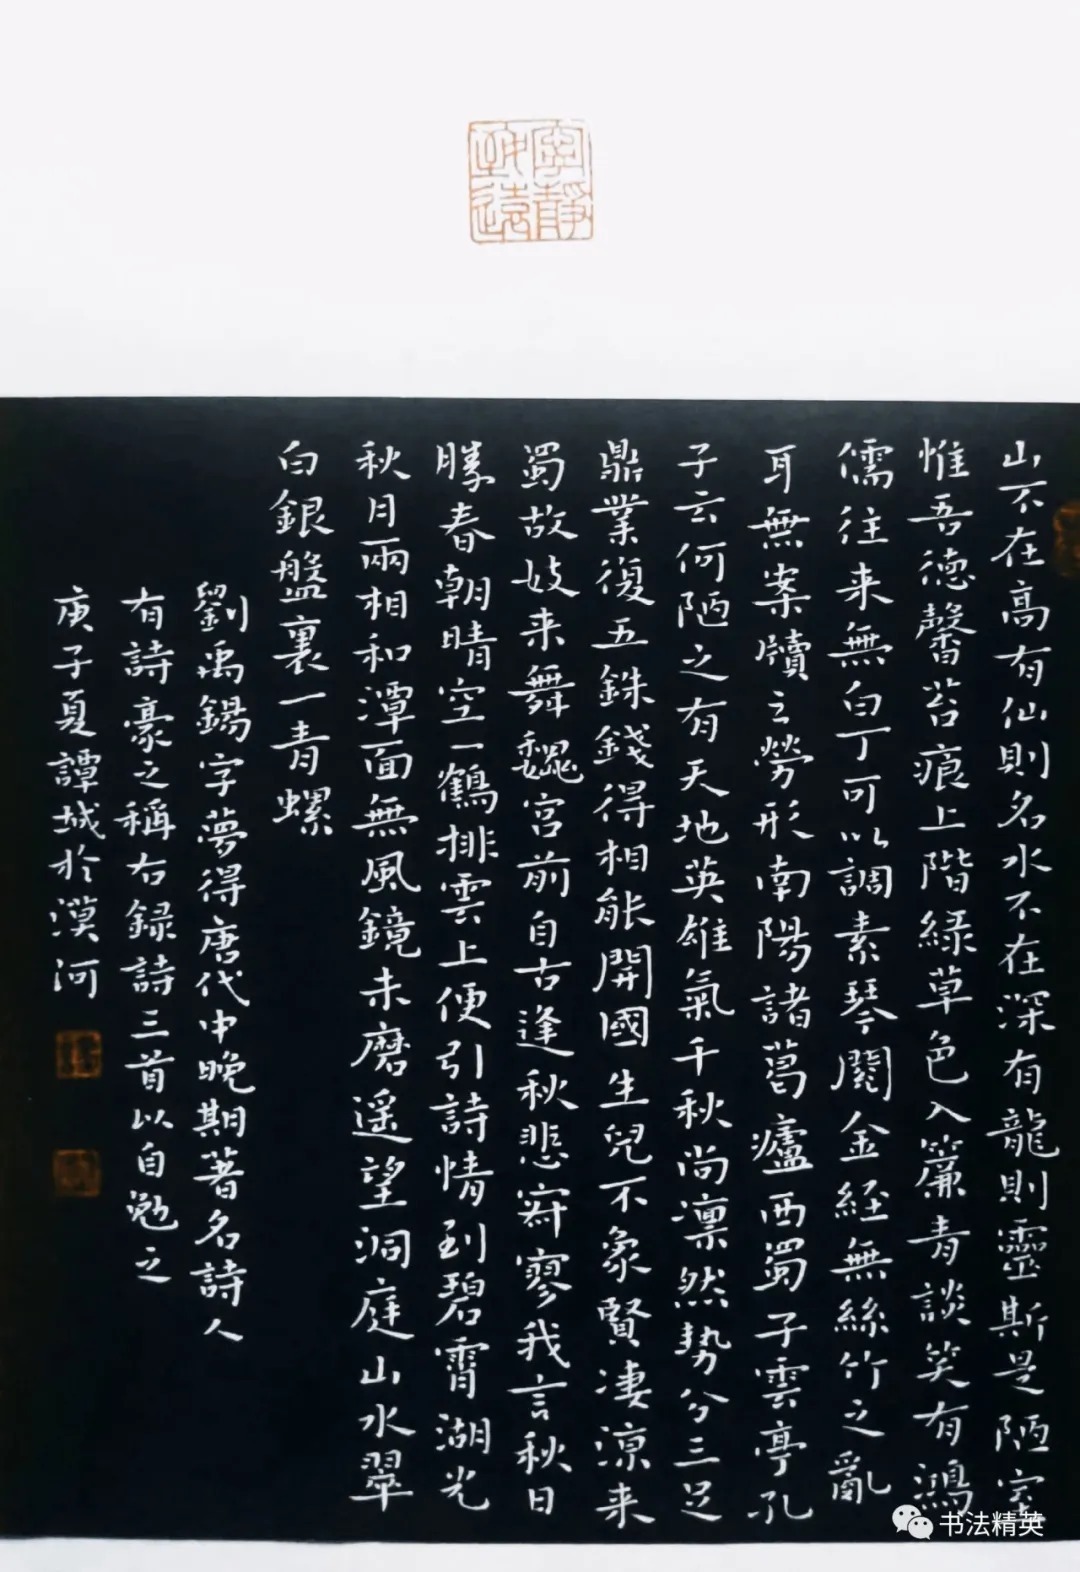 寧靜致遠
山不在高有仙則名水不在深有龍則靈斯是陋室
惟吾德馨苔痕上階緑草色入簾青談笑有鴻
儒往来無白丁可以調素琴閱金経無絲竹之亂
耳無案牘之勞形南陽諸葛廬西蜀子雲亭孔
子云何陋之有天地英雄氣千秋尚凛然勢分三足
鼎業復五銖錢得相能開國生兒不象賢凄涼来
蜀故妓来舞魏宮前自古逢秋悲寂寥我言秋日
勝春朝晴空一鶴排雲上便引詩情到碧霄湖光
秋月兩相和潭面無風鏡未磨遥望洞庭山水翠
白銀盤裏一青螺
劉禹錫字夢得唐代中晚期著名詩人
有詩豪之稱右録詩三首以自勉之
庚子夏譚城於漠河
书法精英